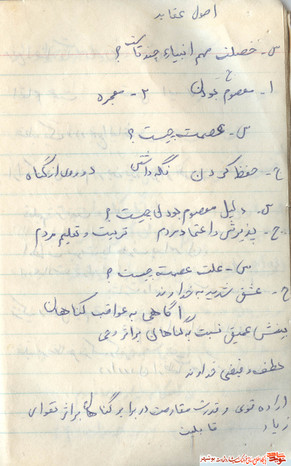 اصول عقاید
س - خصلت مهم انبیاء چند تاست ؟
ج
۱ - معصوم بودن ۲ - معجزه
س - عصمت چیست ؟
ج - حفظ کردن نگه داشتن دوری از گناه
س - دلیل معصوم بودن چیست ؟
ج - پذیرش و اعتماد مردم تربیت و تعلیم مردم
س - علت عصمت چیست ؟
ج - عشق شدید به خداوند
آگاهی به عواقب گناهان
بینش عمیق نسبت به گناهان براثر وحی
لطف و فیض خداوند
اراده قوی و قدرت مقاومت در برابر گناهان براثر تقوای
زیاد قابلیت